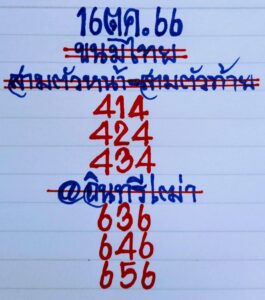 16ตค.66
ขนมีไทย
สามตัวหน้า-สามตัวท้าย
414
424
434
@อินทรีเผ่า
636
646
656